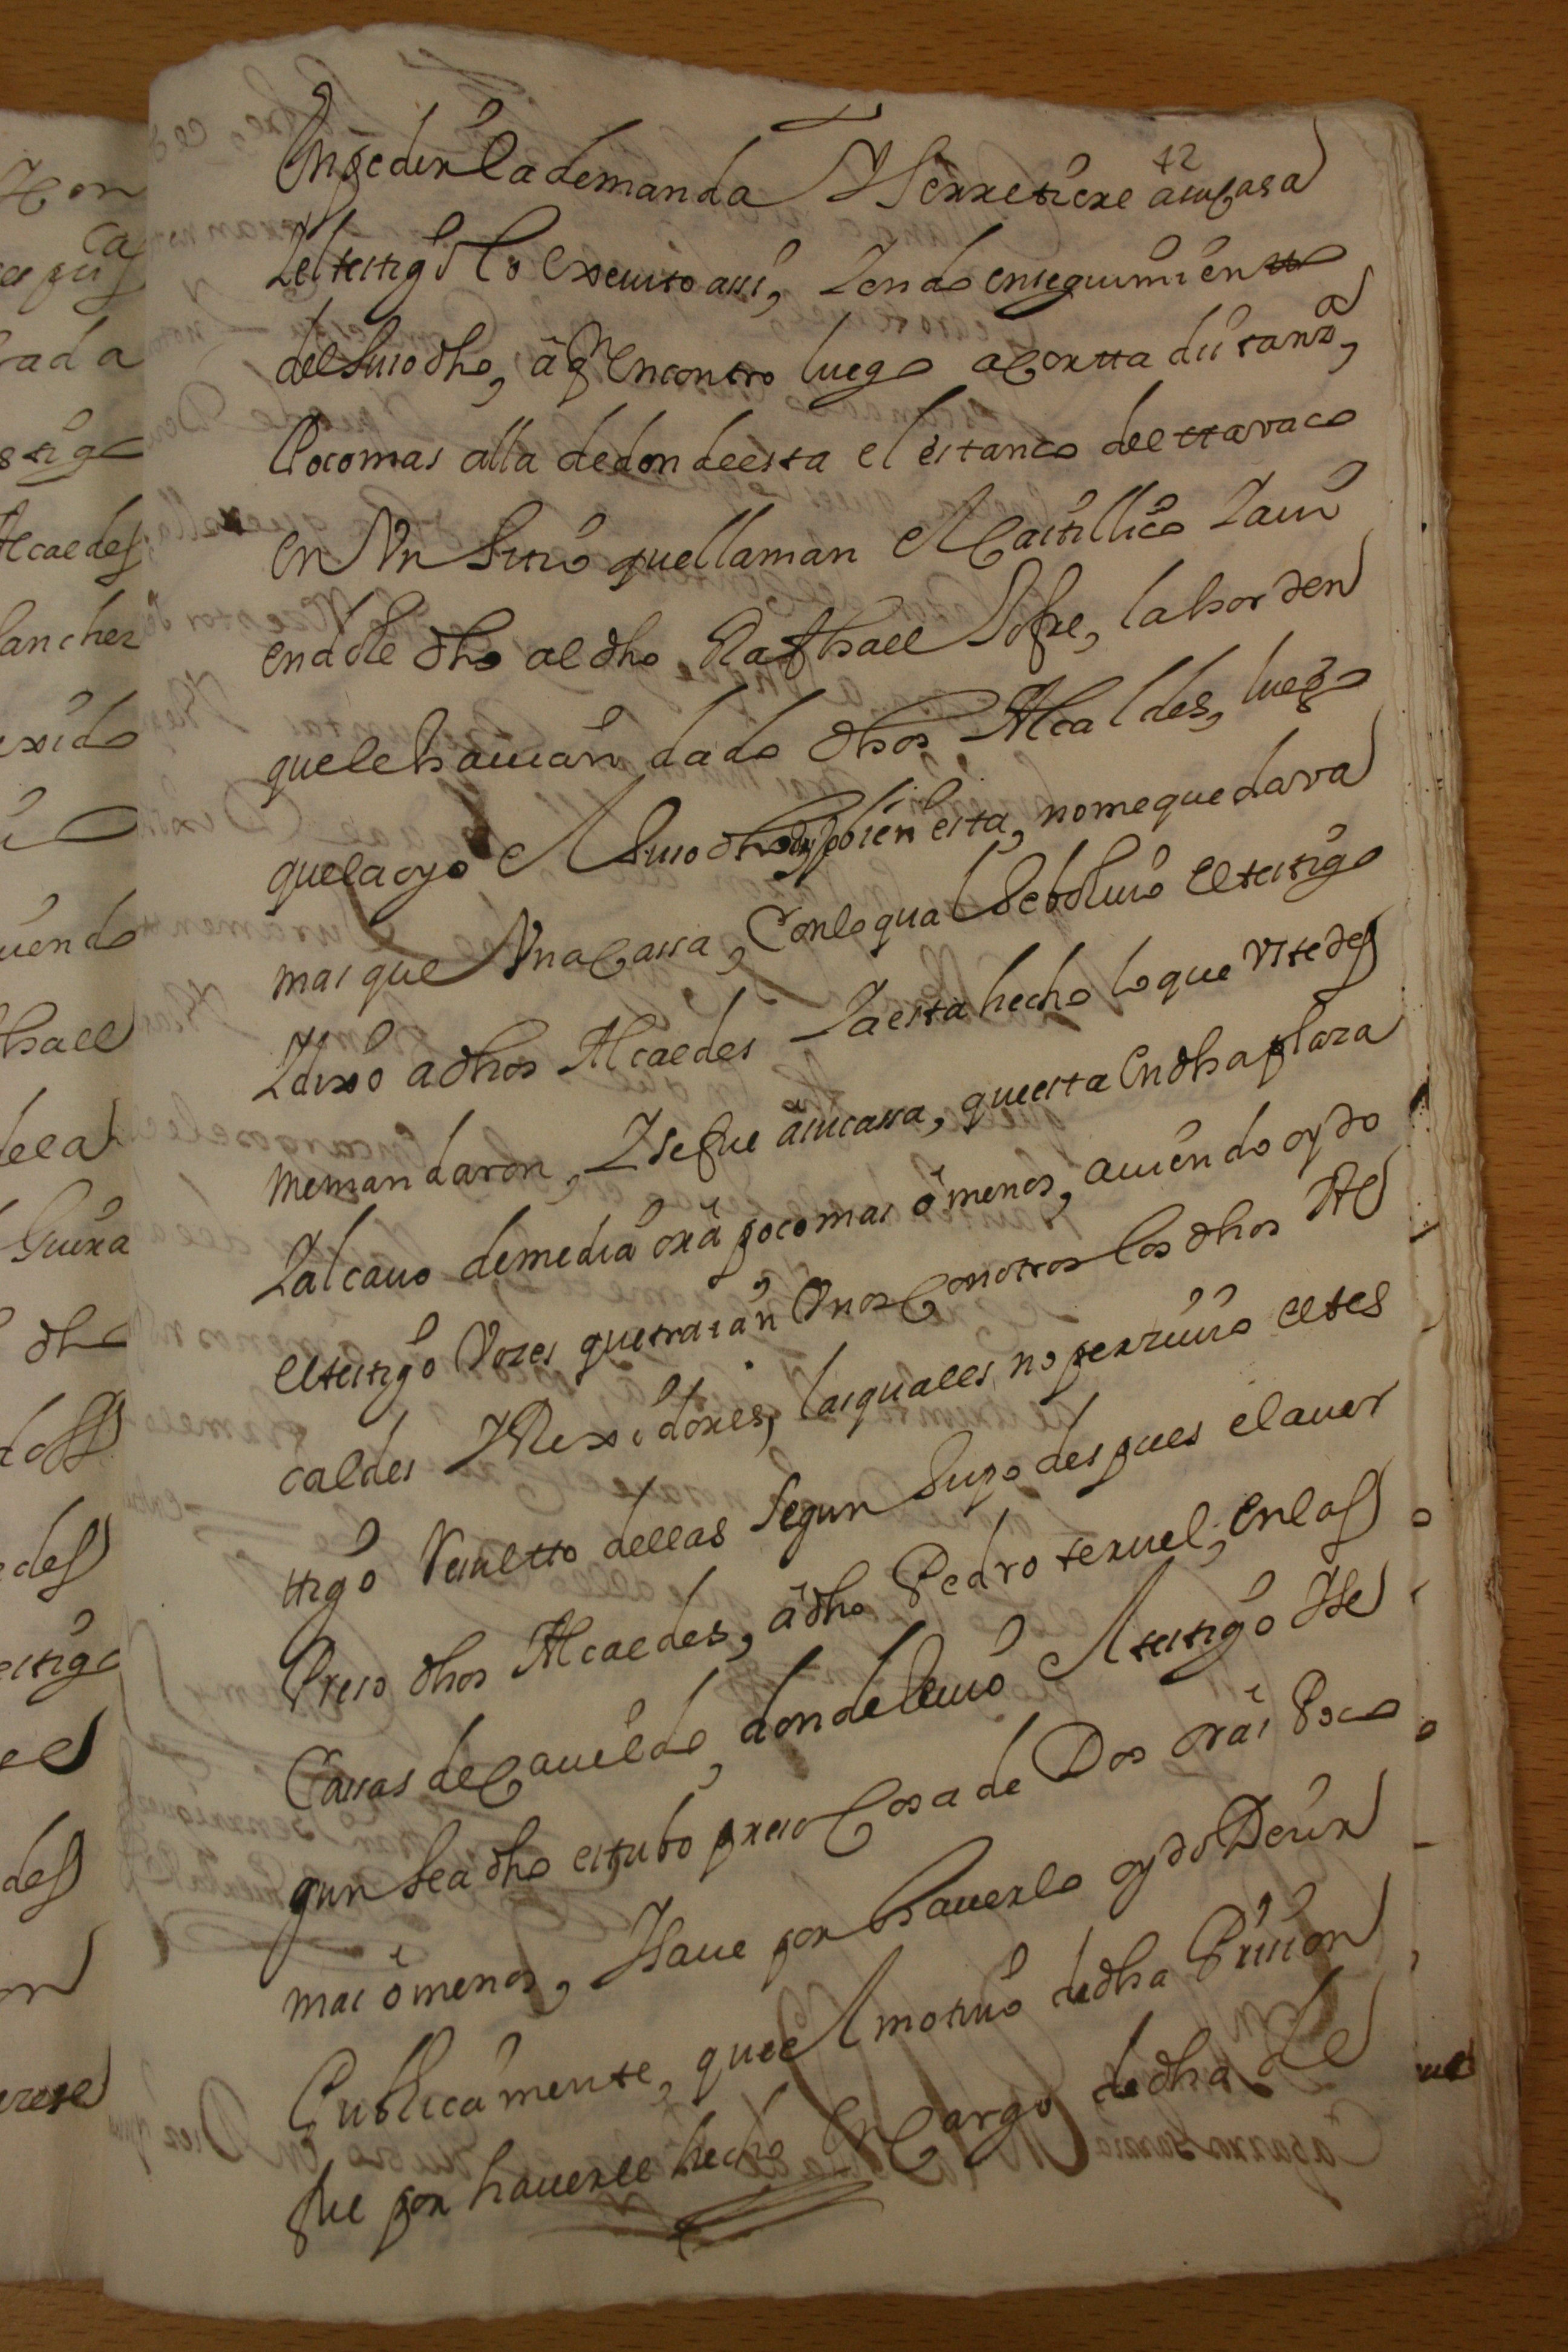 42
En pedir la demanda Y se rretirere a su casa
Y el testigo lo executo assi, Y endo en seguimiento
del suso dho, a qn encontro luego a corta distanzia,
Poco mas alla de donde esta el estanco del ttavaco
en Vn Sitio que llaman el Castillico Y aui
endole dho al dho Raphael Jofre, la horden
que le hauian dado dhos Alcaldes, luego
que la oyo el Suso dho dijo bien esta, no me quedava
mas que Vna Cassa, Con lo qual Se boluio el testigo
Y dixo a dhos Alcaldes Ya esta hecho lo que Vstedes
me mandaron, Y se fue a su cassa, que esta En dha plaza
Y al cauo de media ora poco mas o menos, auiendo oydo
el testigo Vozes que traian Vnos Con otros los dhos Al
caldes Y Rexidores, las quales no perziuio el tes
ttigo Resultto dellas Segun Supo despues el auer
Preso dhos Alcaldes, a dho Pedro teruel, en las
Cassas de Cauildo, donde le vio el testigo Y se
gun lea dho estubo preso Cosa de Dos oras Poco
mas o menos, Y saue por hauerlo oydo Decir
Publicamente, que el motiuo de dha Prision
fue por hauerle hecho En Cargo de dha Le